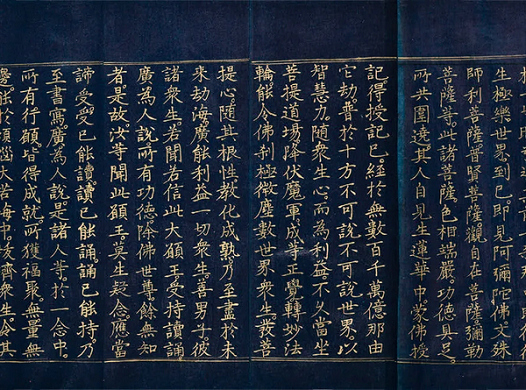 生極樂世界到已。即見阿彌陀佛文殊
師利菩薩普賢菩薩觀自在菩薩彌勒
菩薩等此諸菩薩色相端嚴。功德具足。
所共圍遶。其人自見生蓮華中。蒙佛授
記得授記已。經於無數百千萬億那由
它劫。普於十方不可說不可說世界。以
智慧力。隨衆生心。而為利益不久當坐
菩提道場。降伏魔軍成等正覺轉妙法
輪能令佛剎極微塵數世界衆生。發菩
提心。隨其根性教化成熟乃至盡於未
來劫海廣能利益一切衆生。善男子。彼
諸衆生若聞若信此大願王受持讀誦
廣為人說所有功德除佛世尊餘無知
者是故汝等聞此願王莫生疑念應當
諦受。受已能讀讀已能誦誦已能持。乃
至書寫廣為人說。是諸人等於一念中。
所有行願。皆得成就。所獲福聚。無量無
邊能於煩惱大苦海中。拔濟衆生令其